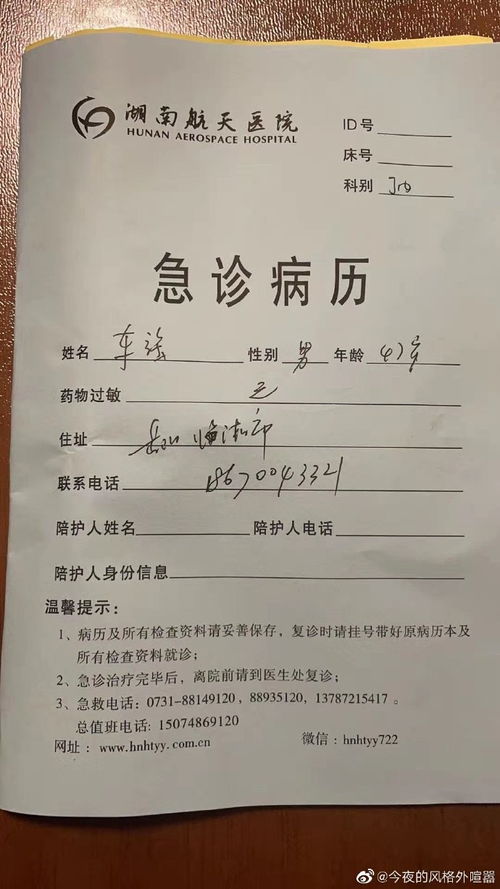 湖南航天医院
HUNAN AEROSPACE HOSPITAL
ID号
床号
科别
急诊病历
姓名 车强 性别 男 年龄 47岁
药物过敏 无
住址 临湘市
联系电话 18670043321
陪护人姓名 陪护人电话
陪护人身份信息
温馨提示：
1、病历及所有检查资料请妥善保存，复诊时请挂号带好原病历本及
所有检查资料就诊；
2、急诊治疗完毕后，离院前请到医生处复诊；
3、急救电话：0731-88149120，88935120，13787215417 。
总值班电话: 15074869120
网址： www.hnhtyy.com.cn 微信：hnhtyy722
@今夜的风格外喧嚣